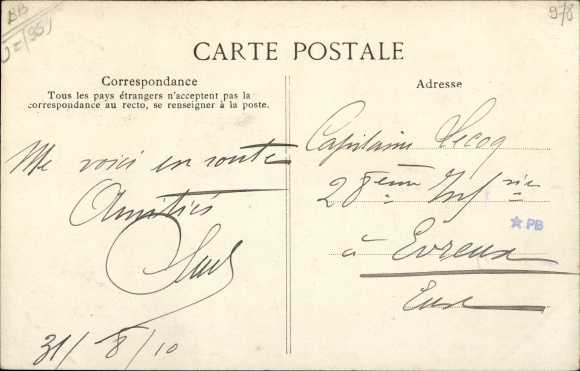 BB
978
CARTE POSTALE
Correspondance
Tous les pays étrangers n'acceptent pas la
correspondance au recto, se renseigner à la poste.
Me voici en route
Amitiés
31/8/10
Adresse
Capitaine Lecoq
28ème Infrie
à Evreux
Eure
★ PB